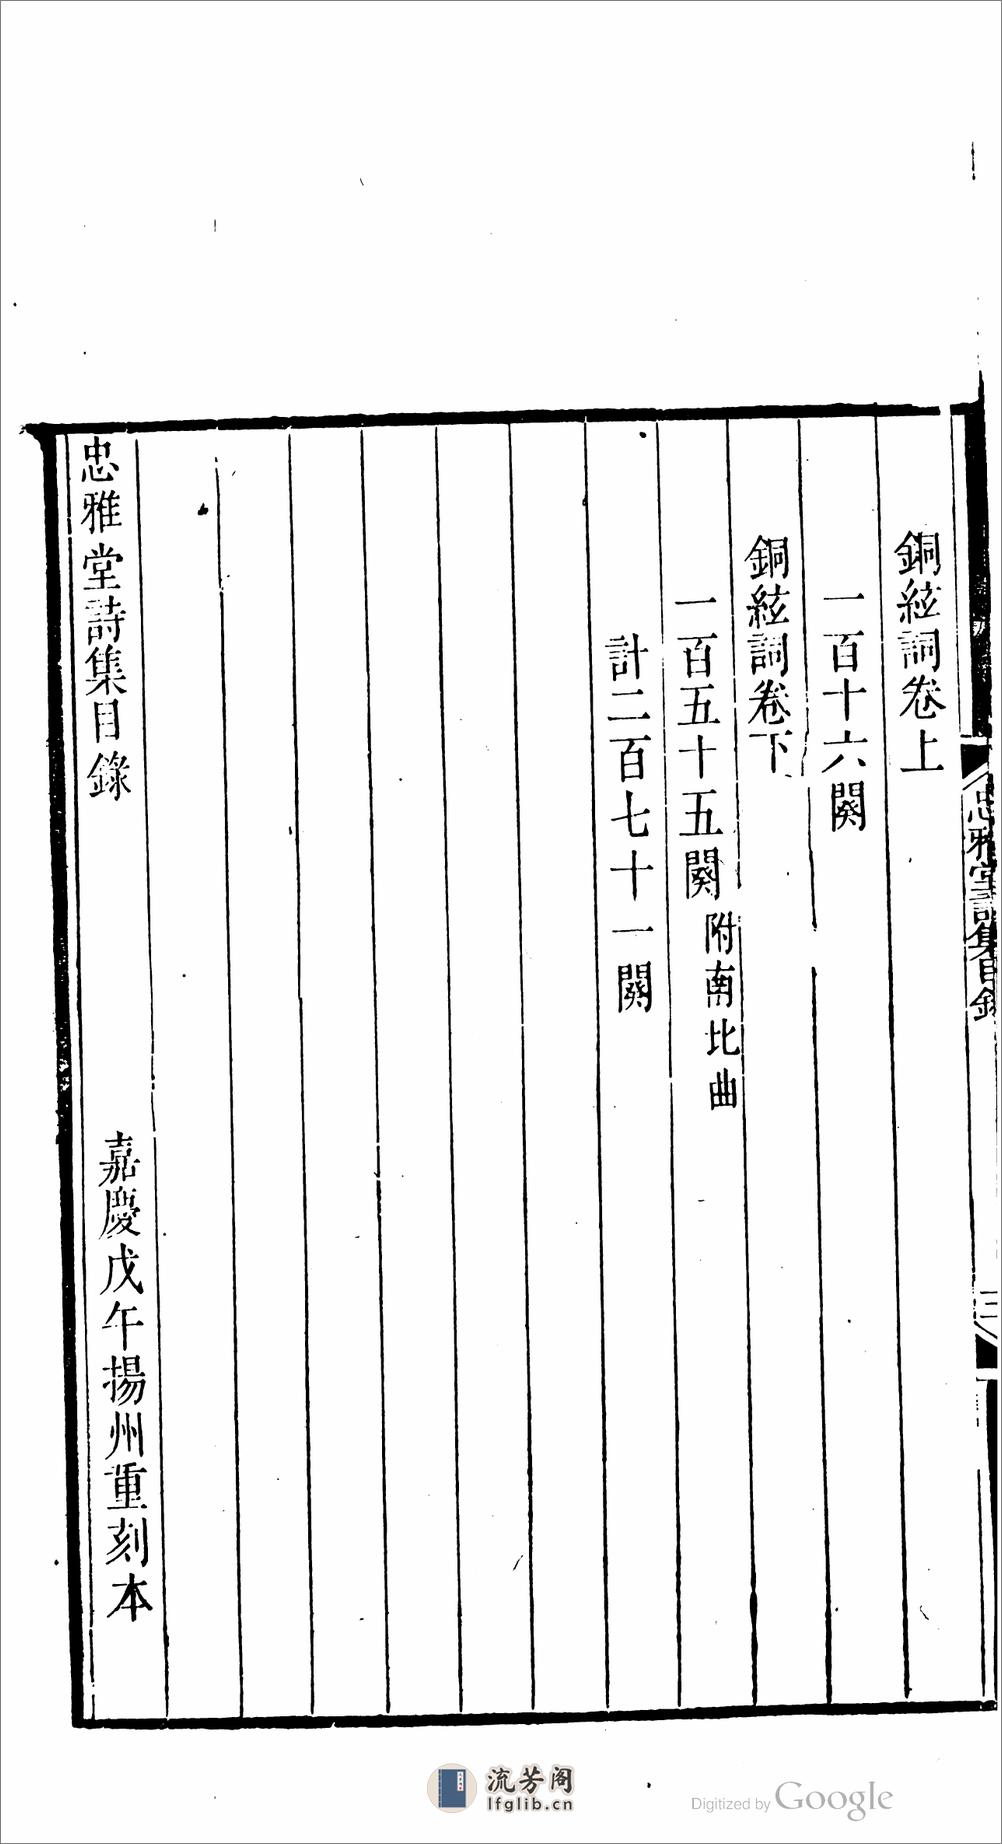 銅絃詞卷上
一百十六闋
銅絃詞卷下
一百五十五闋 附南北曲
計二百七十一闋
忠雅堂詩集目錄
嘉慶戊午揚州重刻本
忠雅堂詩集目錄
三
流芳阁
lfglib.cn
Digitized by Google